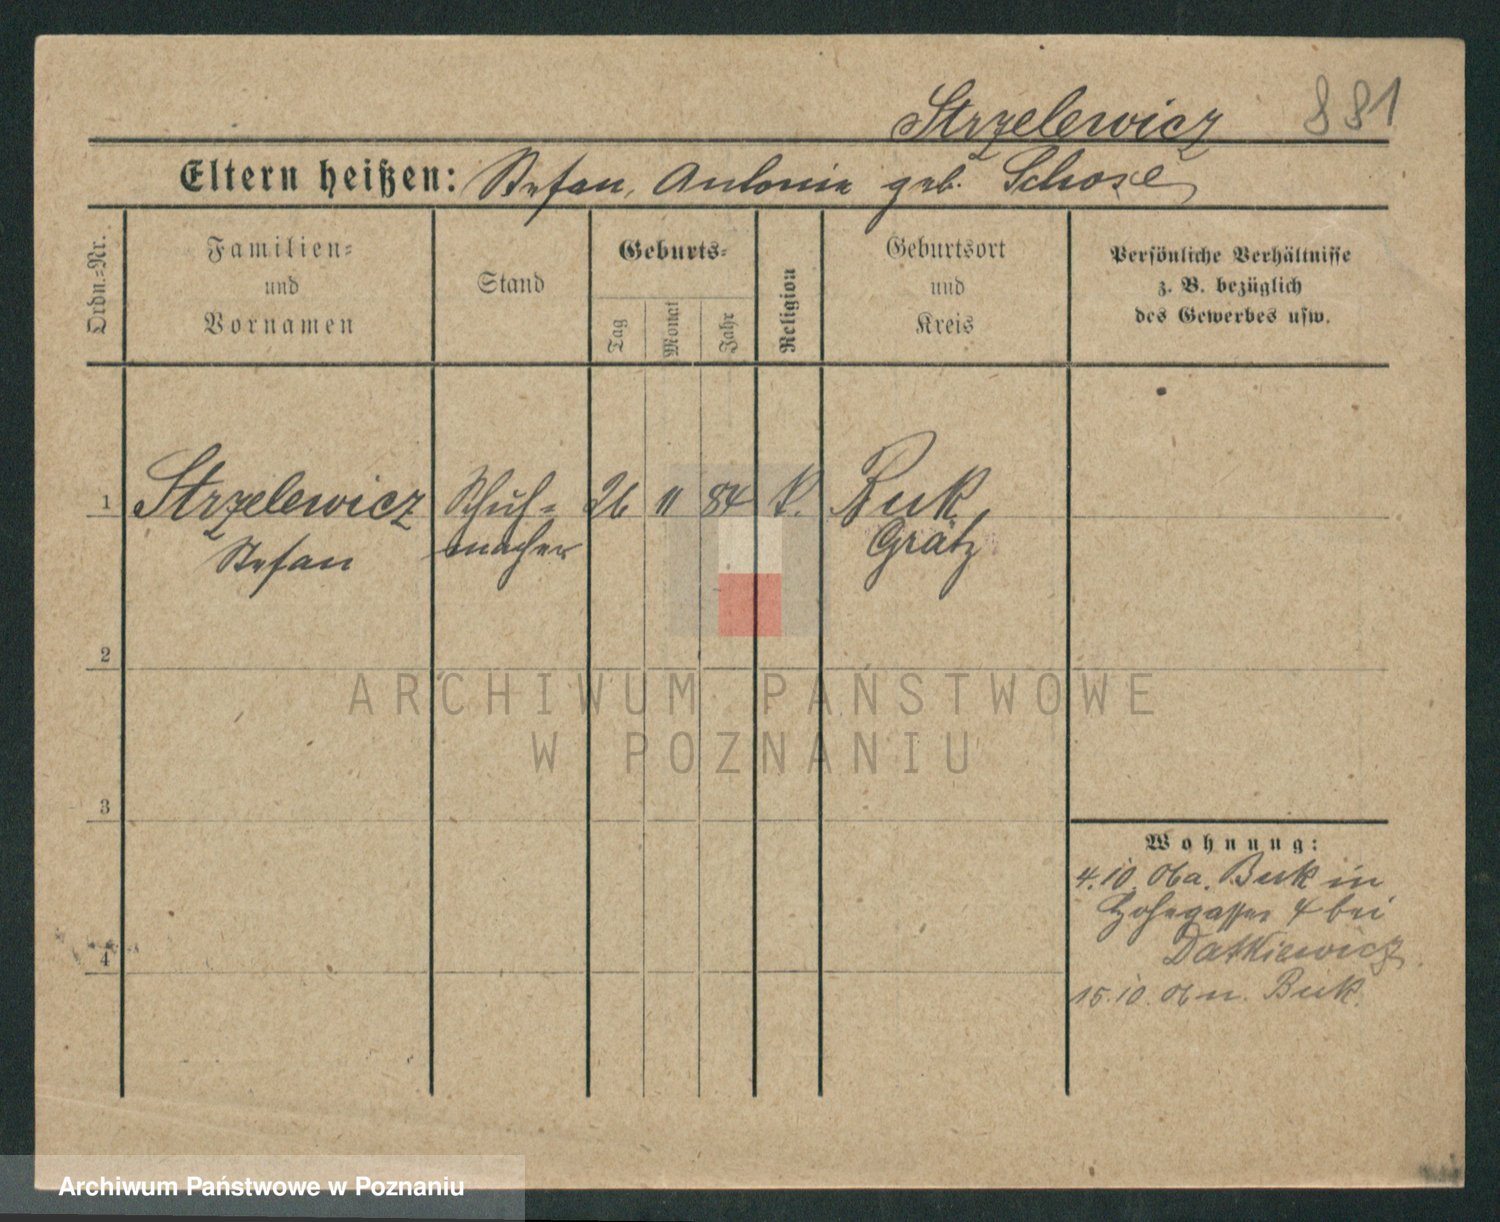 Strzelewicz 881
Eltern heißen: Stefan, Antonie geb. Schose
Ordn.-Nr.
Familien-
und
Vornamen
Stand
Geburts-
Tag
Monat
Jahr
Religion
Geburtsort
und
Kreis
Persönliche Verhältnisse
z. B. bezüglich
des Gewerbes usw.
1 Strzelewicz Schuh- 26 11 84 k. Buk,
Stefan macher Grätz
2
3
4
Wohnung:
4.10.06 a. Buk in
Hohegasse 4 bei
Datkiewicz
15.10.06 n. Buk.
ARCHIWUM PAŃSTWOWE
W POZNANIU
Archiwum Państwowe w Poznaniu